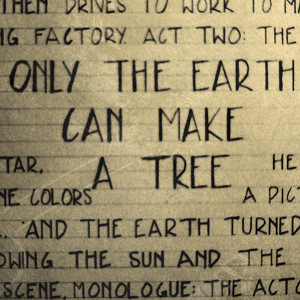 THEN DRIVES TO WORK TO MA
NG FACTORY. ACT TWO: THE
ONLY THE EARTH
CAN MAKE
TAR, A TREE HE
NE COLORS A PIC
AND THE EARTH TURNED
OWING THE SUN AND THE
SCENE, MONOLOGUE: THE ACTO